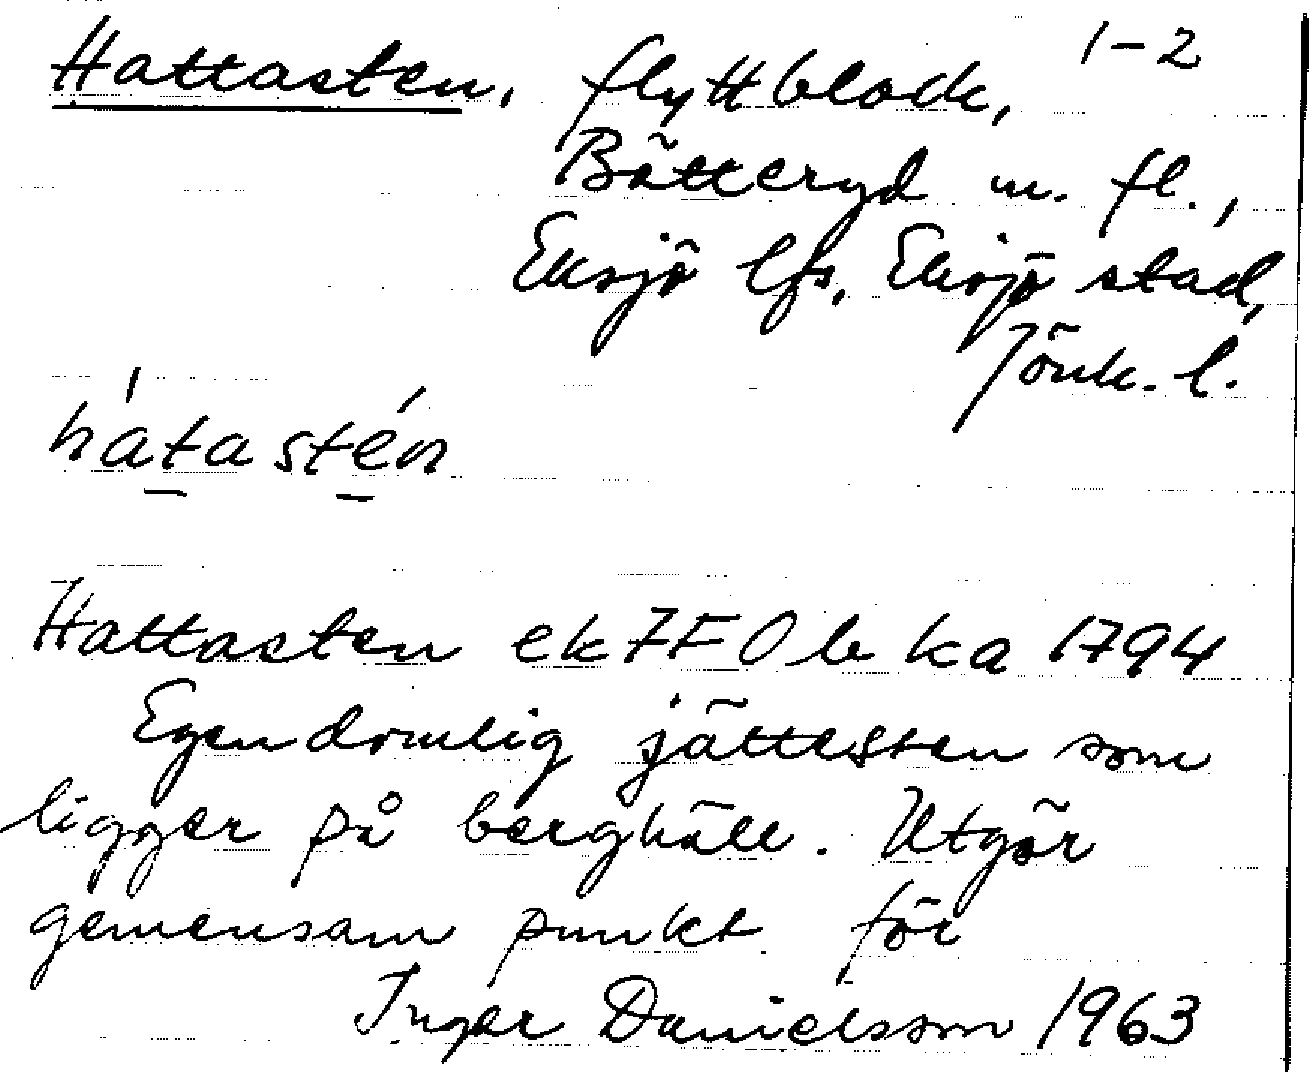 Hattasten, flyttblock, 1-2
Bätteryd m. fl.,
Eksjö lfs, Eksjö stad,
Jönk. l.
hátastén
Hattasten ek 7FOb ka 1794
Egendomlig jättesten som
ligger på berghäll. Utgör
gemensam punkt för
Inger Danielsson 1963